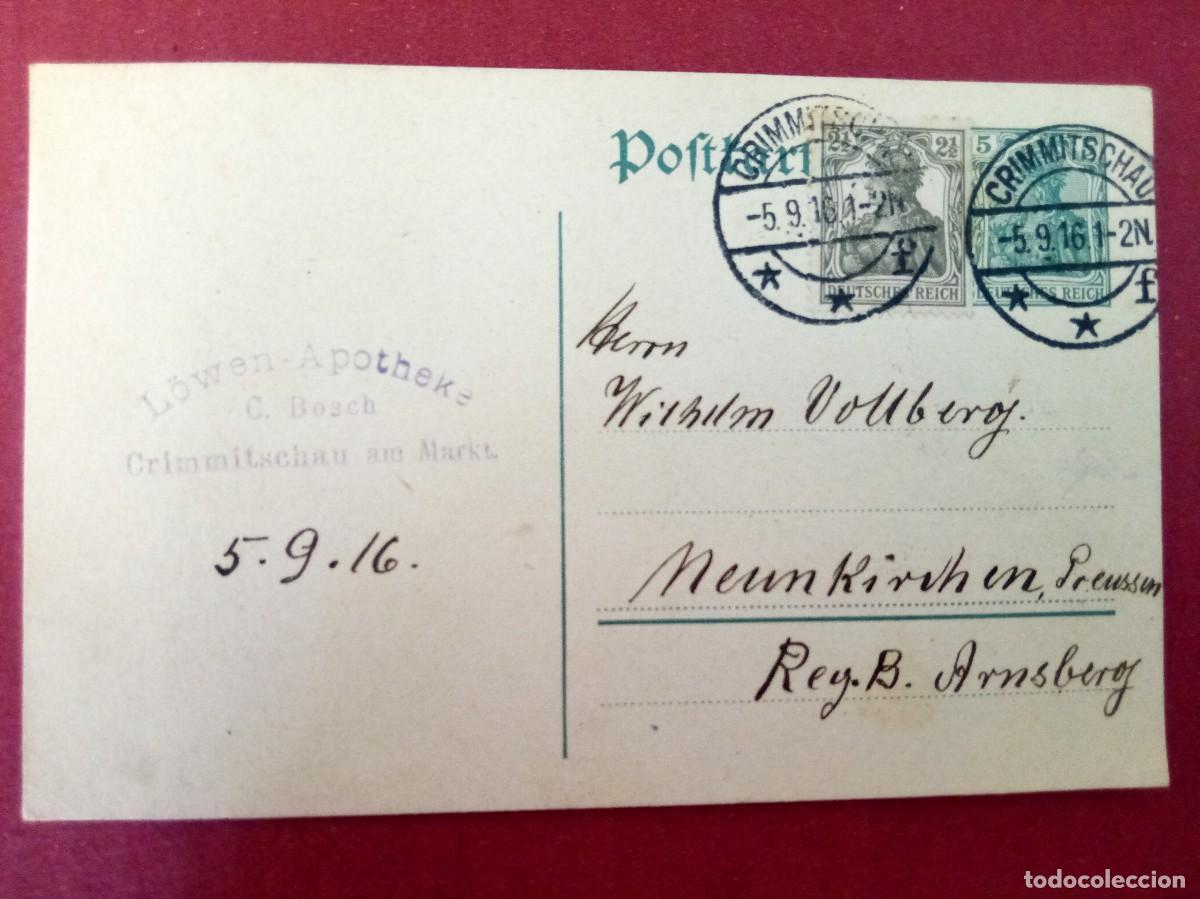 Postkarte
2½ 2½
DEUTSCHES REICH
5
DEUTSCHES REICH
CRIMMITSCHAU
-5.9.16 1-2N.
f
CRIMMITSCHAU
-5.9.16 1-2N.
f
Löwen-Apotheke
C. Bosch
Crimmitschau am Markt.
5.9.16.
Herrn
Wilhelm Vollberg.
Neunkirchen, Preussen
Reg.B. Arnsberg
todocoleccion